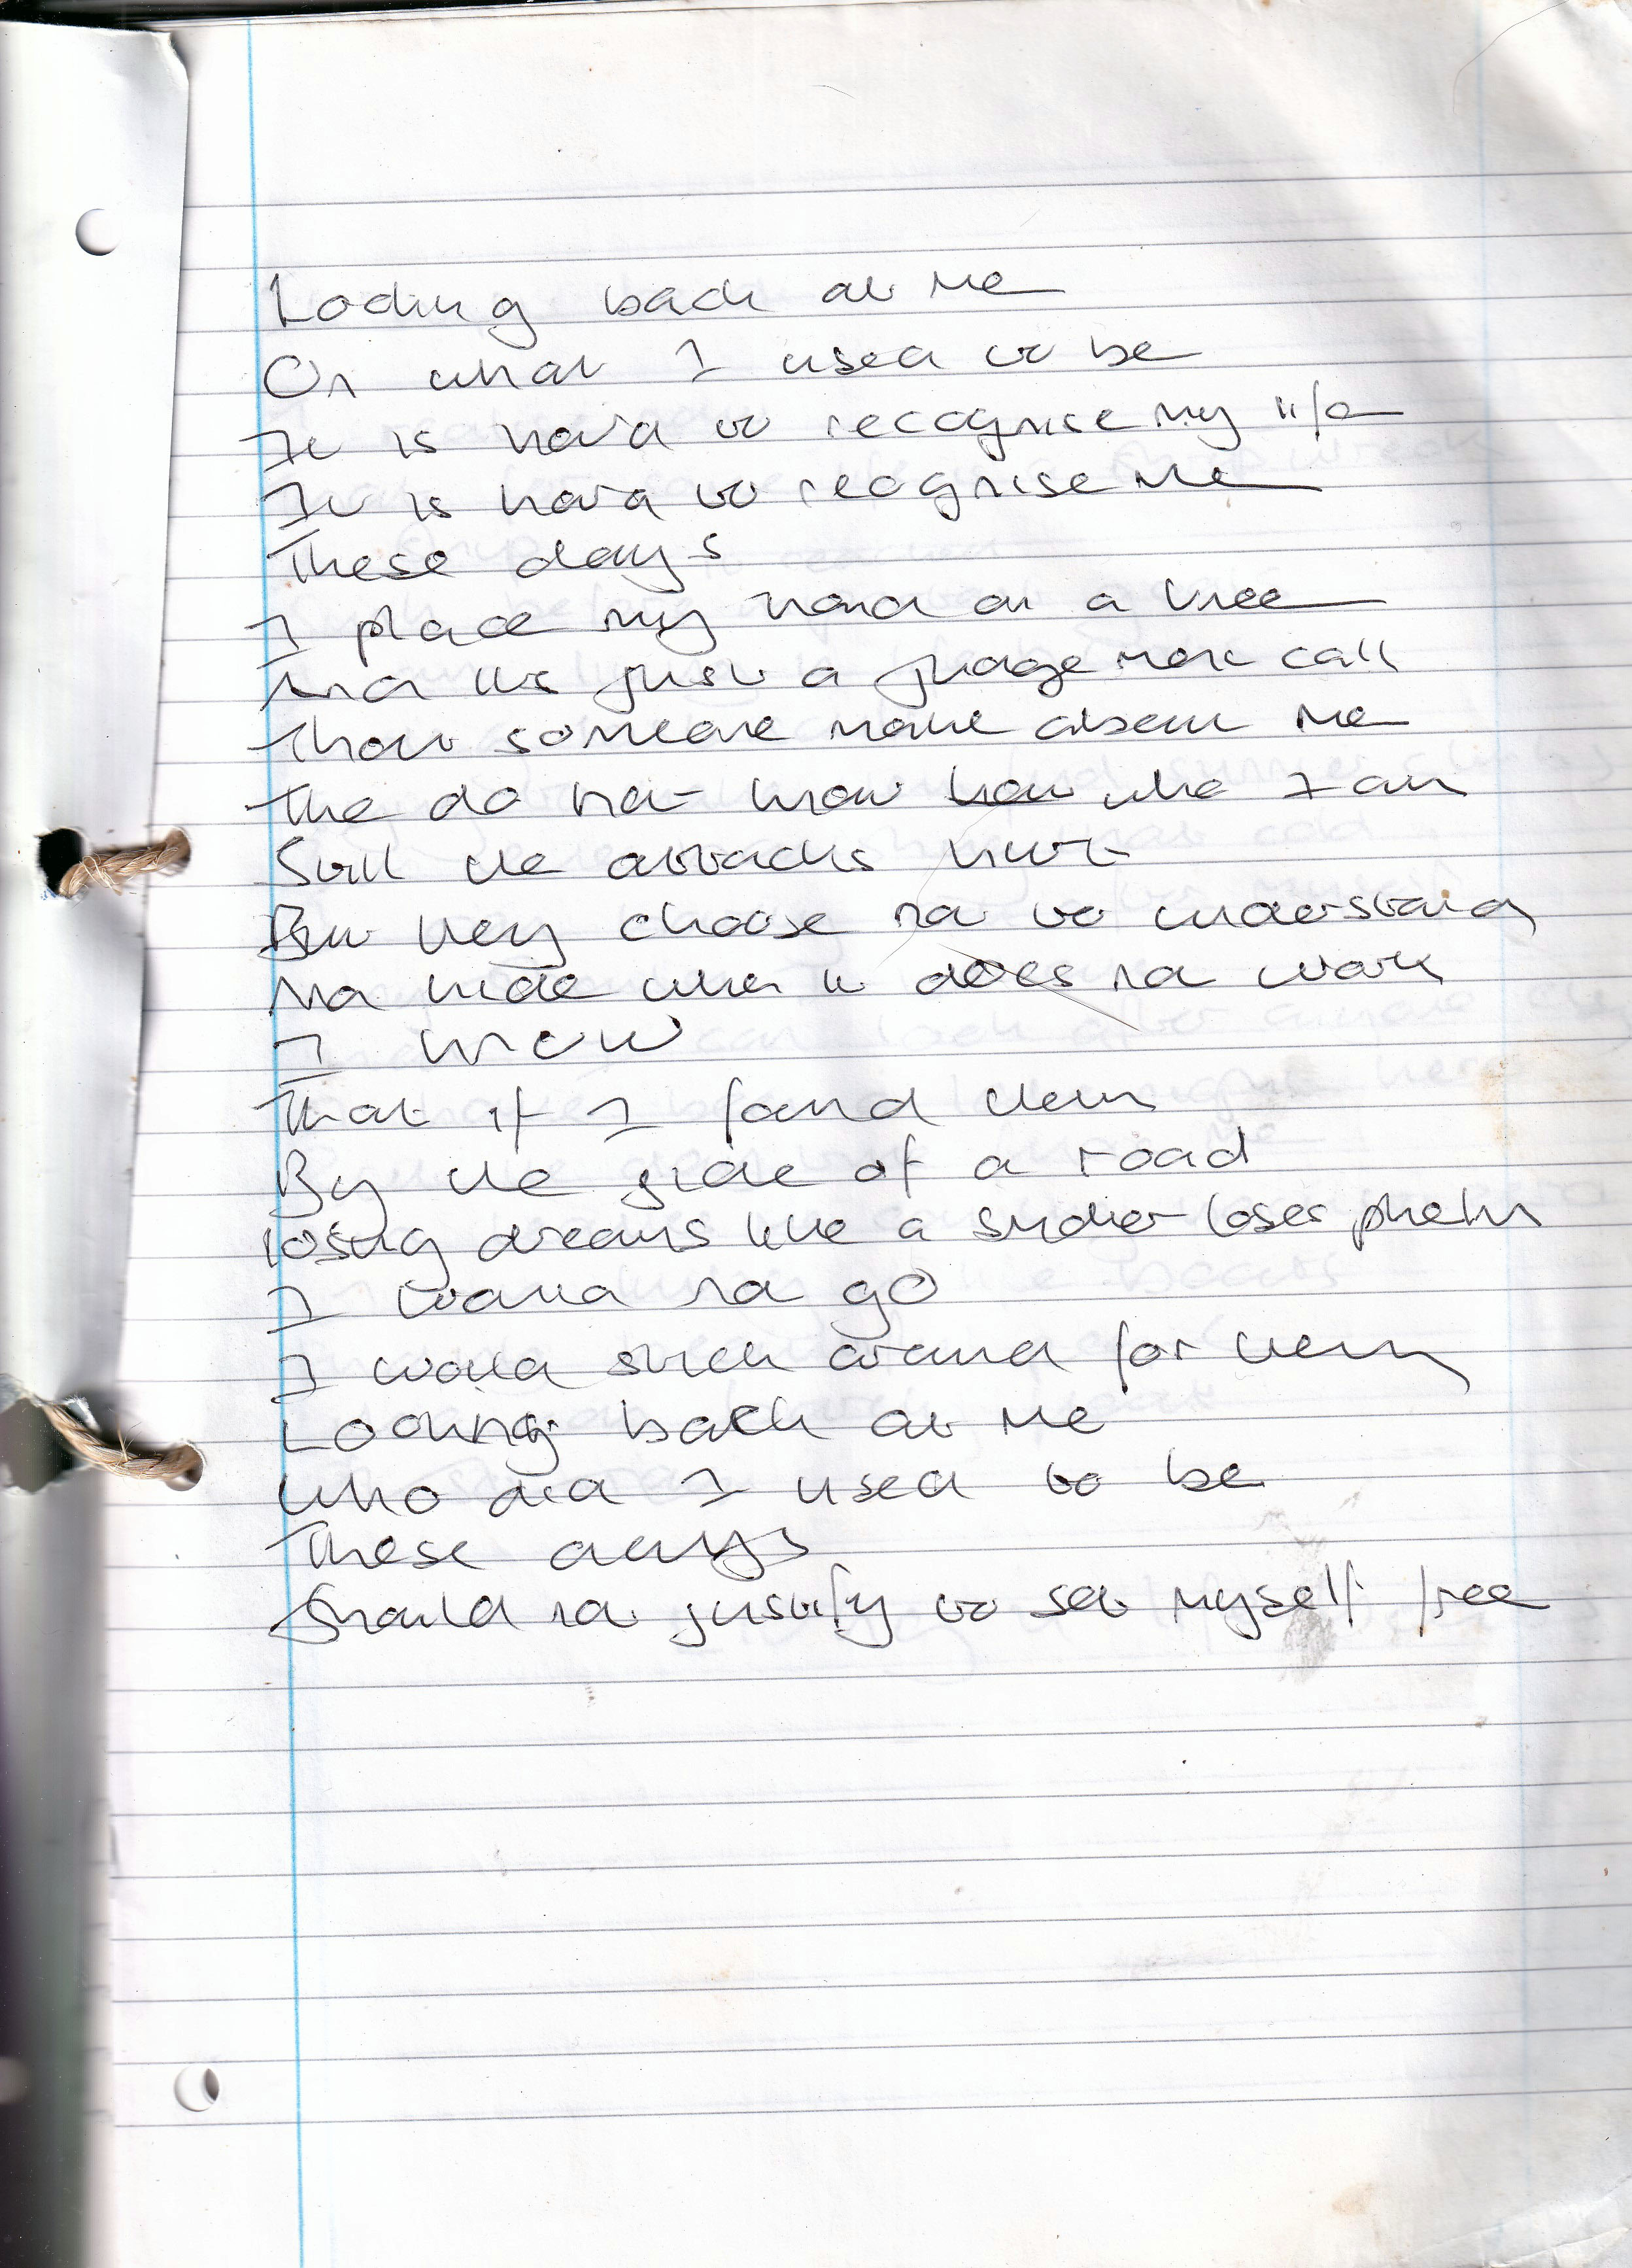 Looking back at me
On what I used to be
It is hard to recognise my life
It is hard to reognise me
These days
I place my hand on a tree
And its just a judgement call
That someone made about me
The do not know how who I am
Still the attacks hurt
But they choose not to understand
No matter when it does not work
I know
That if I found them
By the side of a road
losing dreams like a smoker loses phelm
I would not go
I would stick around for them
Looking back at me
Who did I used to be
These days
Should not justify to set myself free